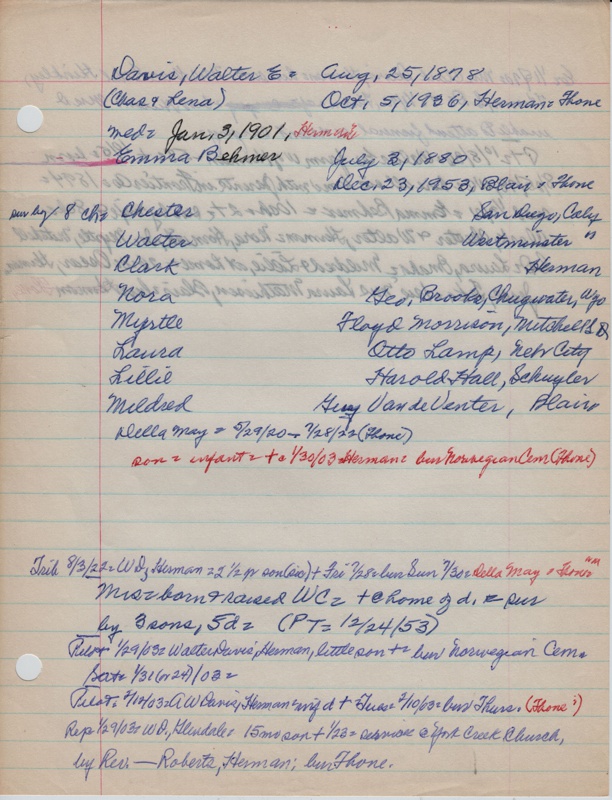 Davis, Walter E = Aug, 25, 1878
(Chas & Lena) Oct, 5, 1936, Herman = Fhone
med = Jan, 3, 1901, Herman
Emma Behmer July 3, 1880
Dec. 23, 1953, Blair = Fhone
sur by 8 ch = Chester San Diego, Caly
Walter Westminster "
Clark Herman
Nora Geo, Brooks, Chugwater, Wyo
Myrtle Floyd Morrison, Mitchell S D
Laura Otto Lamp, Nebr City
Lillie Harold Hall, Schuyler
Mildred Guy Van de Venter, Blair
Della May = 5/29/20 - 7/28/22 (Fhone)
son = infant = + = 1/30/03 = Herman = bur Norwegian Cem (Fhone)
Trib 8/3/22 = WD, Herman = 2 1/2 yr son (sic) + Fri 7/28 = bur Sun 7/30 = Della May = Fhone
Mrs = born & raised WC = + c home of d. = sur
by 3 sons, 5d = (PT = 12/24/53)
Pilot 1/29/03 = Walter Davis, Herman, little son + = bur Norwegian Cem =
1/31 (or 24) /03 =
Pilot, 2/12/03 = A W Davis, Herman = inf d + Tues = 2/10/03 = bur Thurs. (Fhone?)
Rep 1/29/03 = WD, Glendale = 15 mo son + 1/23 = service @ York Creek Church,
by Rev. — Roberts, Herman; bur Fhone.